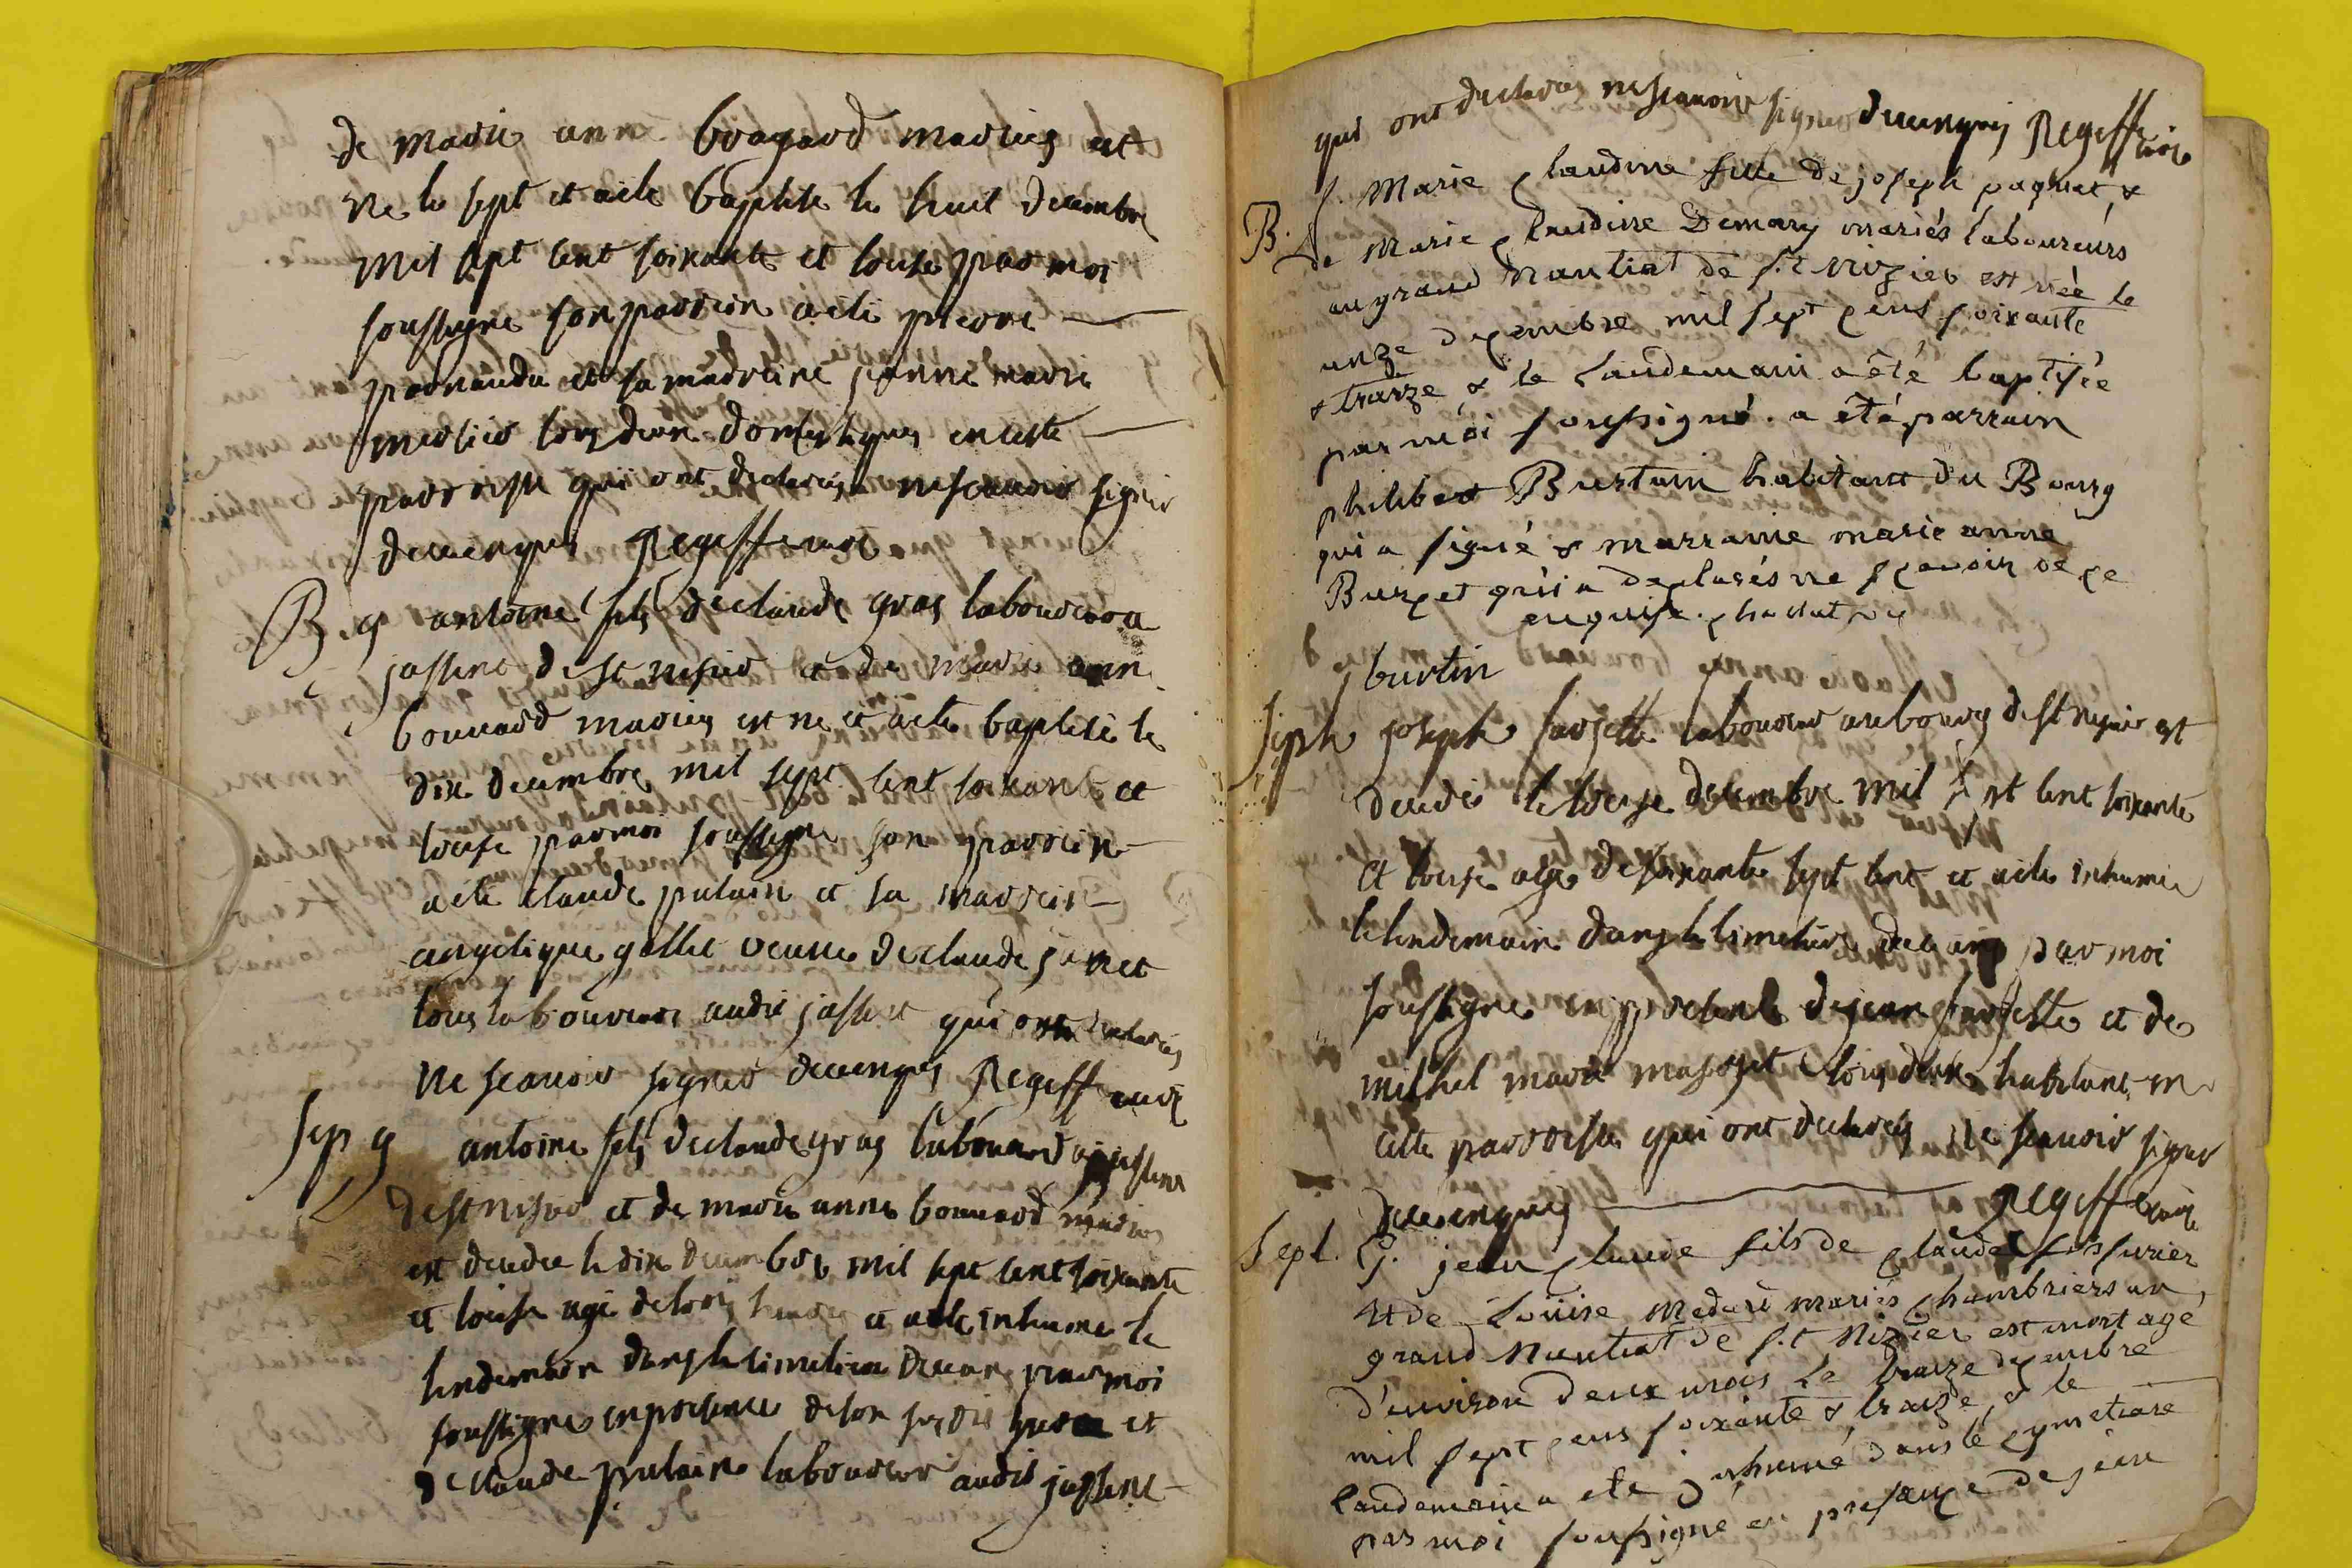 de marie ann bragard maries est
ne le sept et aété baptisé le huit decembre
mil sept cent soixante et treise par moi
soussigné son parrein aeté pierre
et sa madreine janne marie
mercier tous deux domestiques en cette
parroisse qui ont declarés ne scauoir signer
de ce enquis
B. g antoine fils de claude gras laboureur a
jassens de st nisier et de marie ann
bonnard maries est né et aeté baptisé le
dix decembre mil sept cent soixante et
treise par moi soussigné son parrein
aeté claude pulain et sa marrein
angelique gallet veuue de claude janet
tous laboureurs audit jassens qui ont declarés
ne scauoir signer de ce enquis
sep g antoine fils de claude gras laboureur a jassens
de st nisier et de marie anne bonnard maries
est decedé le dix decembre mil sept cent soixante
et treise agé de trois heures et aeté inhumé le
lendemain dans le cimetiere de ceans par moi
soussigné en presence de son susdit pere et
de claude pulain laboureur audit jassens
qui ont declarés ne scauoir signer de ce enquis
f. Marie claudine fille de joseph paquet &
B. de Marie claudine Demary mariés laboureurs
au grand nantiat de s.t nizier est née le
onze decembre mil sept cens soixante
& traize & le landemain a été baptisée
par moi soussigné. a été parrain
philibert Burtain habitant du Bourg
qui a signé & marraine marie anne
Burcet qui a declarés ne sçavoir de ce
enquise.
burtin
joseph sarsette laboureur au bourg de st nisier est
decedé le treise decembre mil sept cent soixante
et treise agé de soixante sept ans et aeté inhumé
le lendemain dans le cimetiere de ceans par moi
soussigné en presence de jean sarsette et de
michel marie tous deux habitans en
cette parroisse qui ont declarés ne scauoir signer
de ce enquis
sept. G. jean claude fils de claude
et de Loüise mariés chambriers au
grand Nantiat de s.t Nizier est mort agé
d'environ deux mois le traize decembre
mil sept cens soixante & traize, & le
landemain a eté inhumé dans le cymetiere
par moi soussigné en presance de jean